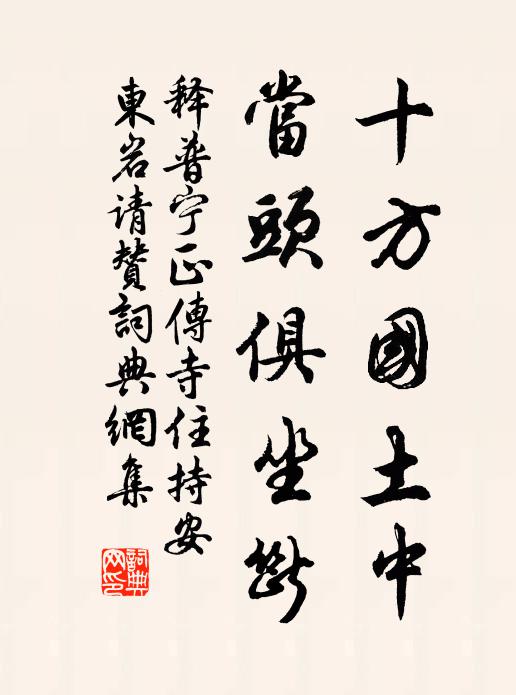 十方國土中
當頭俱坐斷
释普宁正傳寺住持安
東岩请贊詞典網集
詞典網印